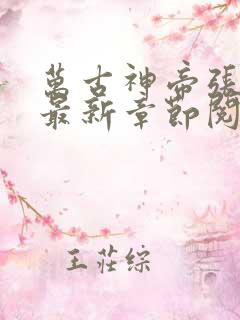 萬古神帝張
最新章節閱
王莊綜